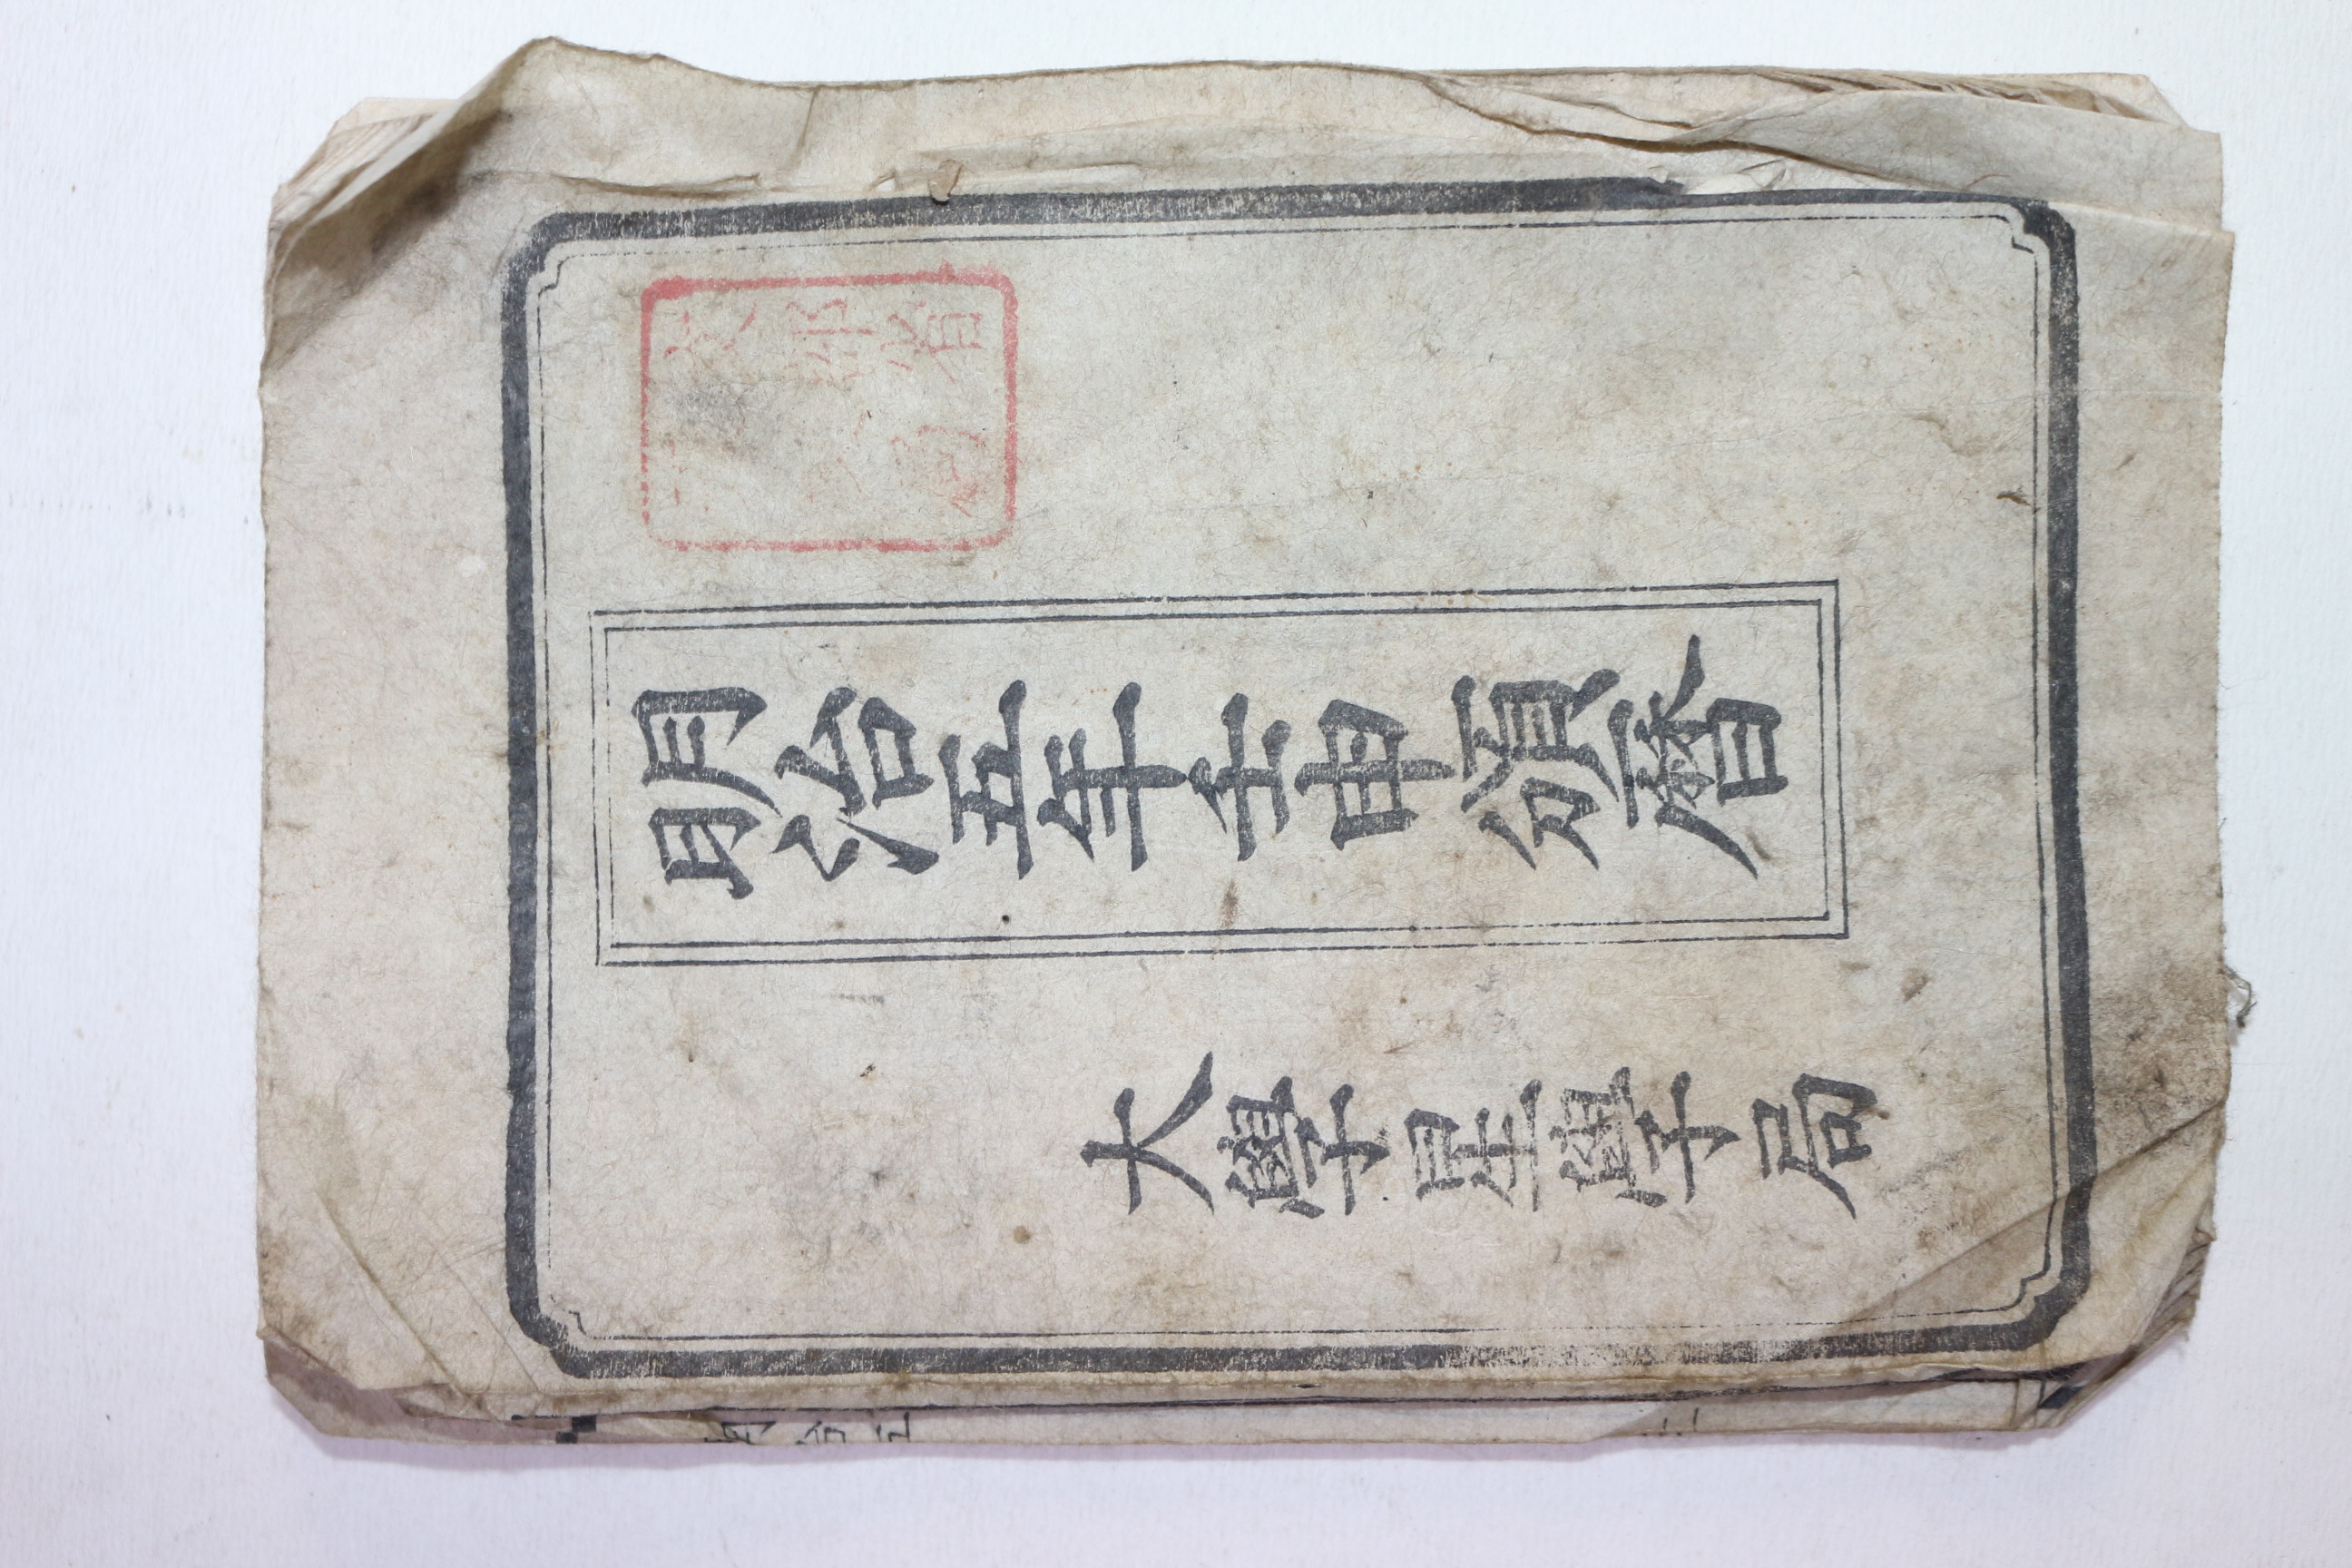 文部省
局
明治五年壬申頒曆
大學星學局